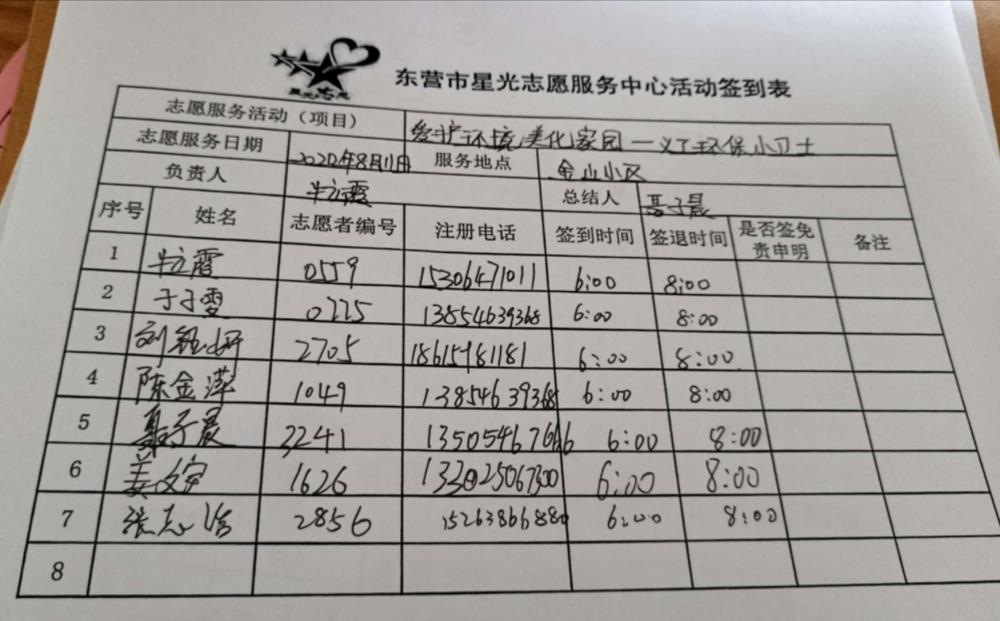 东营市星光志愿服务中心活动签到表
志愿服务活动（项目） 爱护环境美化家园一义工环保小卫士
志愿服务日期 2020年8月11日 服务地点 金山小区
负责人 牛立霞 总结人 聂子晨
序号 姓名 志愿者编号 注册电话 签到时间 签退时间 是否签免责申明 备注
1 牛立霞 0559 15306471011 6:00 8:00
2 于子雯 0225 13854639368 6:00 8:00
3 刘钰妍 2705 18615981181 6:00 8:00
4 陈金萍 1049 13854639368 6:00 8:00
5 聂子晨 2241 13505467666 6:00 8:00
6 姜文宇 1626 6:00 8:00
7 张志 2856 15263866880 6:00 8:00
8